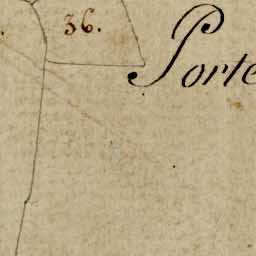 36.
Porte